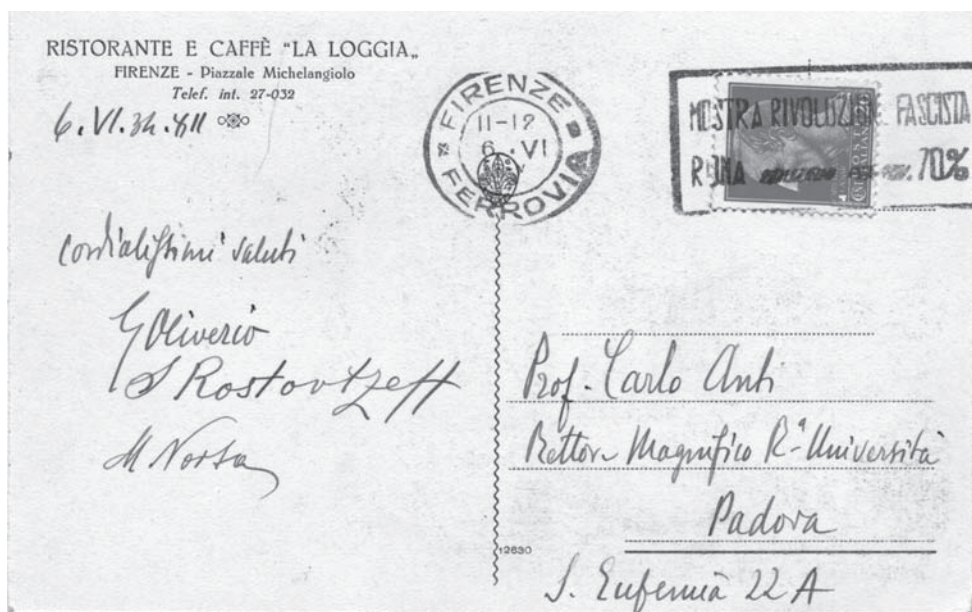 RISTORANTE E CAFFÈ "LA LOGGIA„
FIRENZE - Piazzale Michelangiolo
Telef. int. 27-032
6.VI.34.XII
FIRENZE
11-12
6 . VI
FERROVIA
MOSTRA RIVOLUZIONE FASCISTA
ROMA 70%
Cordialissimi saluti
G Oliverio
S Rostovtzeff
M Norsa
Prof. Carlo Anti
Rettore Magnifico R.ª Università
Padova
S. Eufemia 22 A
12630